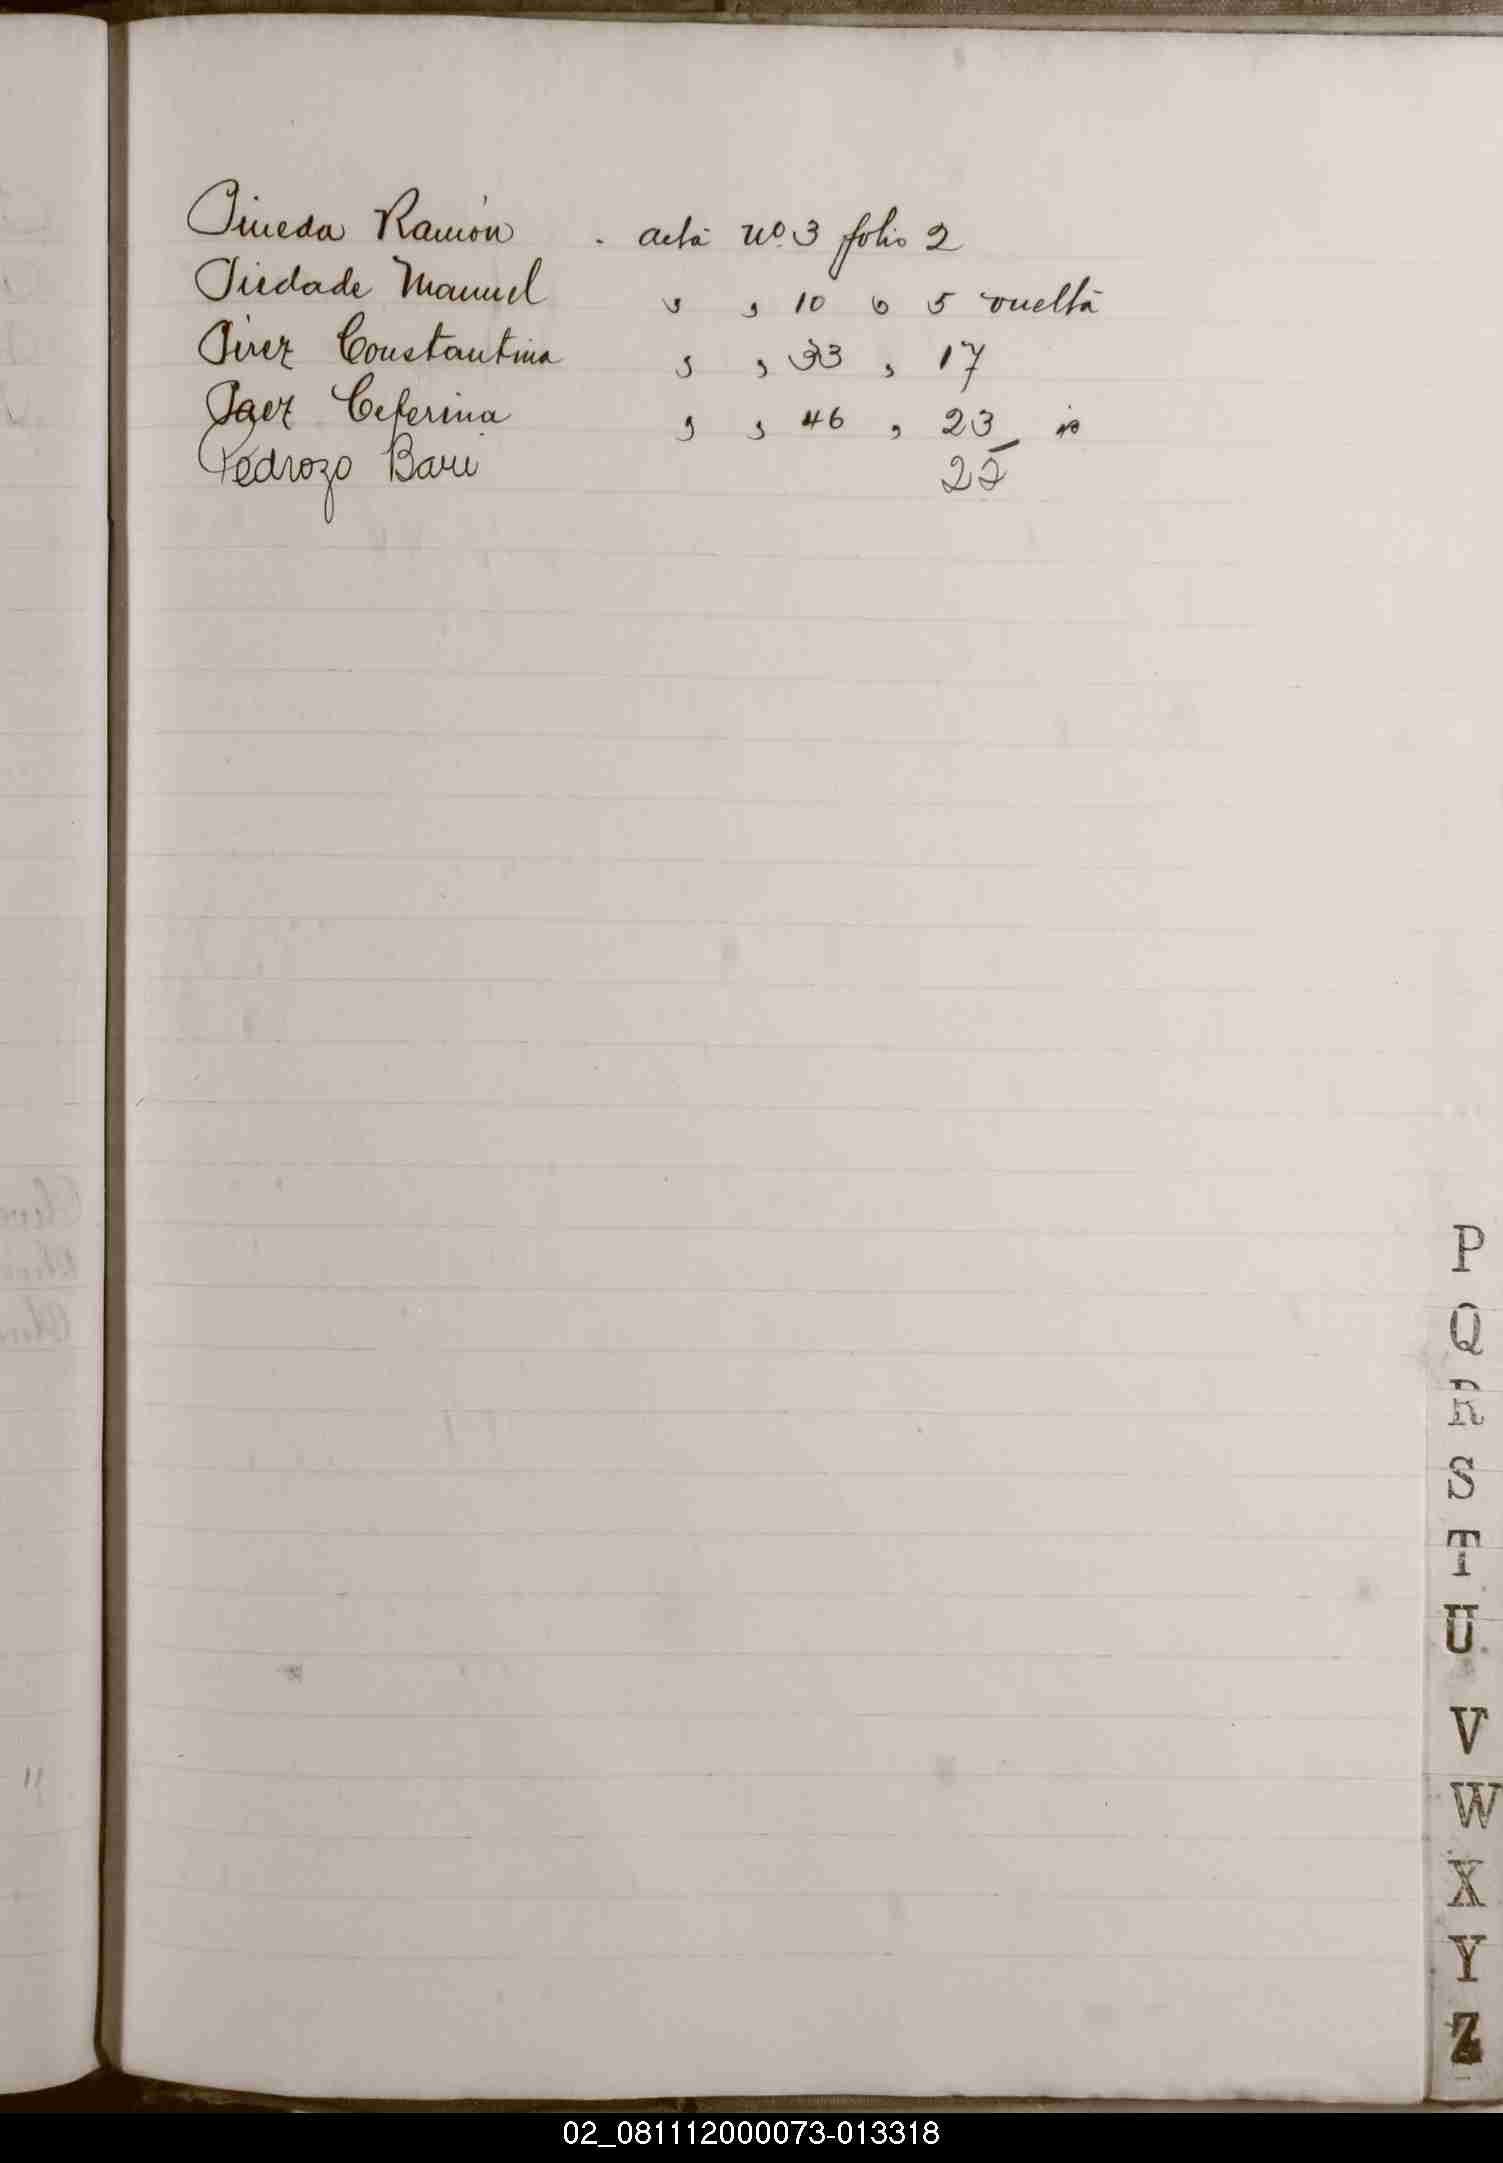 Pineda Ramón . acta nº 3 folio 2
Piedade Manuel " " 10 " 5 vuelta
Pérez Constantina " " 33 " 17
Paez Ceferina " " 46 " 23
Pedrozo 22
P
Q
R
S
T
U
V
W
X
Y
Z
02_081112000073-013318